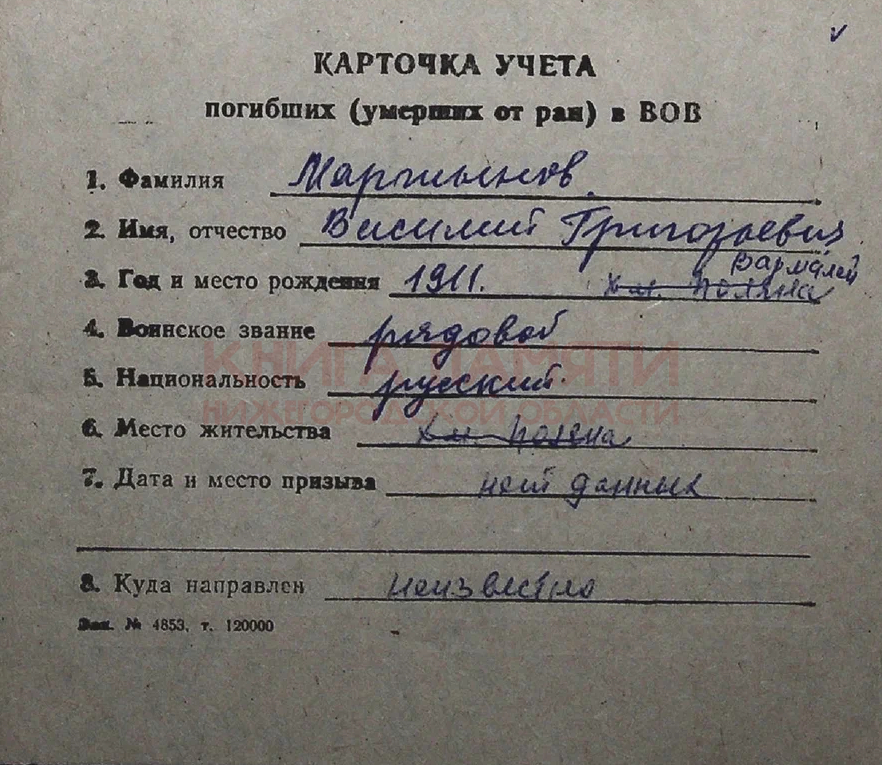 КАРТОЧКА УЧЕТА
погибших (умерших от ран) в ВОВ
1. Фамилия Мартьянов
2. Имя, отчество Василий Григорьевич
Вармалей
3. Год и место рождения 1911. Хм. Поляна
4. Воинское звание рядовой
КНИГА ПАМЯТИ
5. Национальность русский
НИЖЕГОРОДСКОЙ ОБЛАСТИ
6. Место жительства Хм. Поляна
7. Дата и место призыва нет данных
8. Куда направлен неизвестно
Зак. № 4853, т. 120000